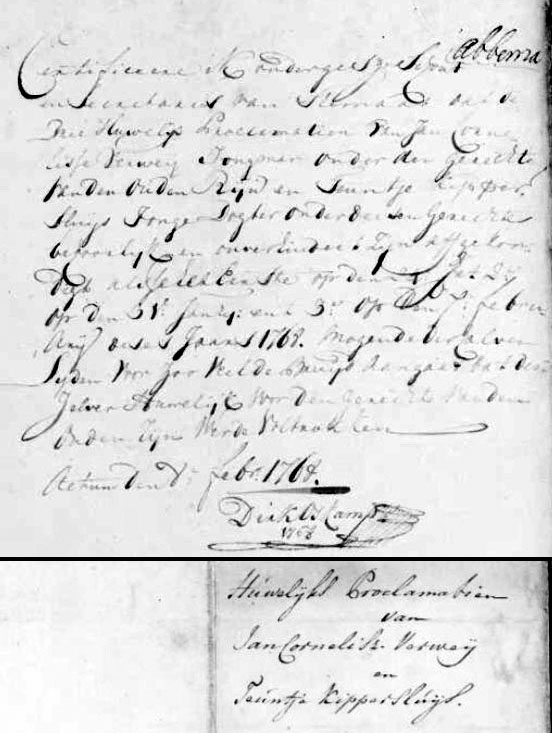 Abbema
Certificeere ik ondergesz: Schout
en secretaris van dat de
Drie Huwelijx Proclamatien van Jan Corne
lisse Verweij Jongman onder den Gerechte
van den Ouden Rijn en Teuntje Kipper
sluijs Jonge Dogter onder deesen Gerechte
behoorlijk en onverhindert zijn afgekon
digt als de Eerste op den 2de
op den 31e Janu: en de 3e op den febru
arij deses Jaars 1768. mogende dersalver
sijden voor zoo veel de aangaat dat des
zelver Huwelijk voor den Gerechte van den
ouden Rijn werde voltrokken
Actum den febr: 1768.
Dirk Os Camp
1768
Huwelijks Proclamatien
van
Jan Cornelisz. Verweij
en
Teuntje Kippersluijs.